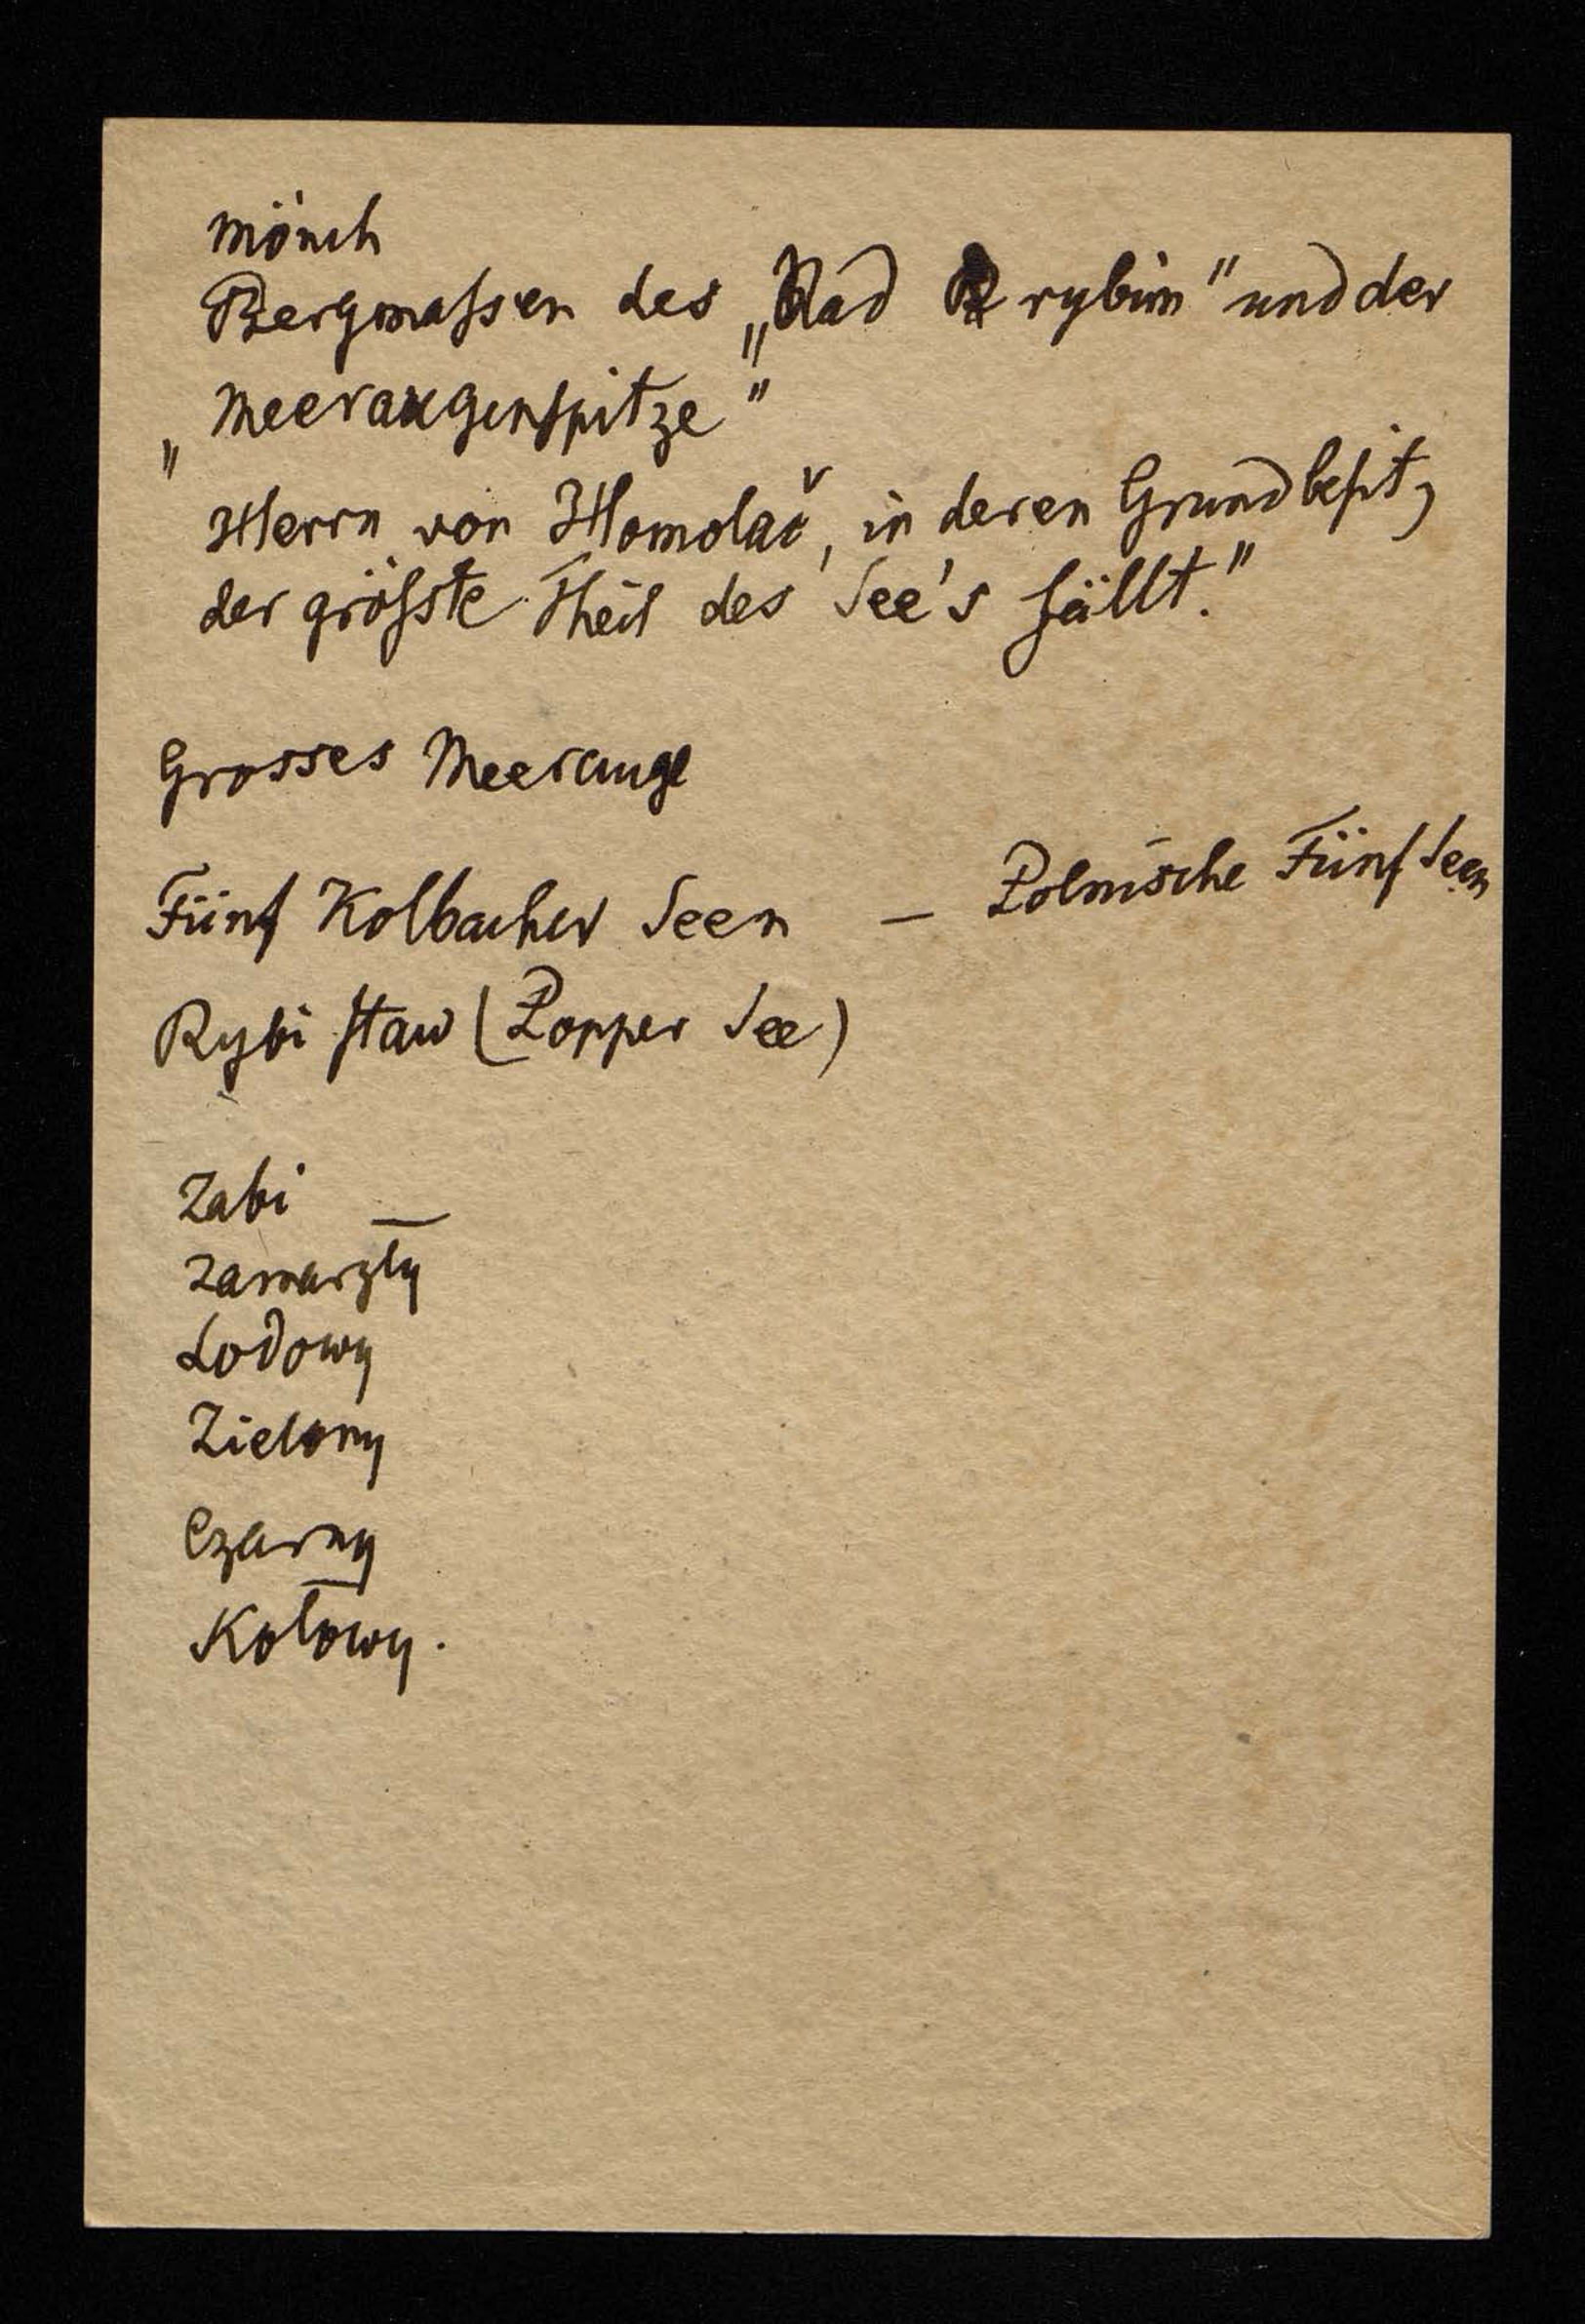 Mönch
Bergmaſsen des „Nad rybim" und der
„Meeraugenſpitze"
Herrn von Homolač, in deren Grundbeſitz
der gröſste Theil des See's fällt."
Grosses Meerauge
Fünf Kolbacher Seen — Polnische Fünf Seen
Rybi ſtaw (Popper See)
Zabi —
Zamarzły
Lodowy
Zielony
Czarny
Kołowy.